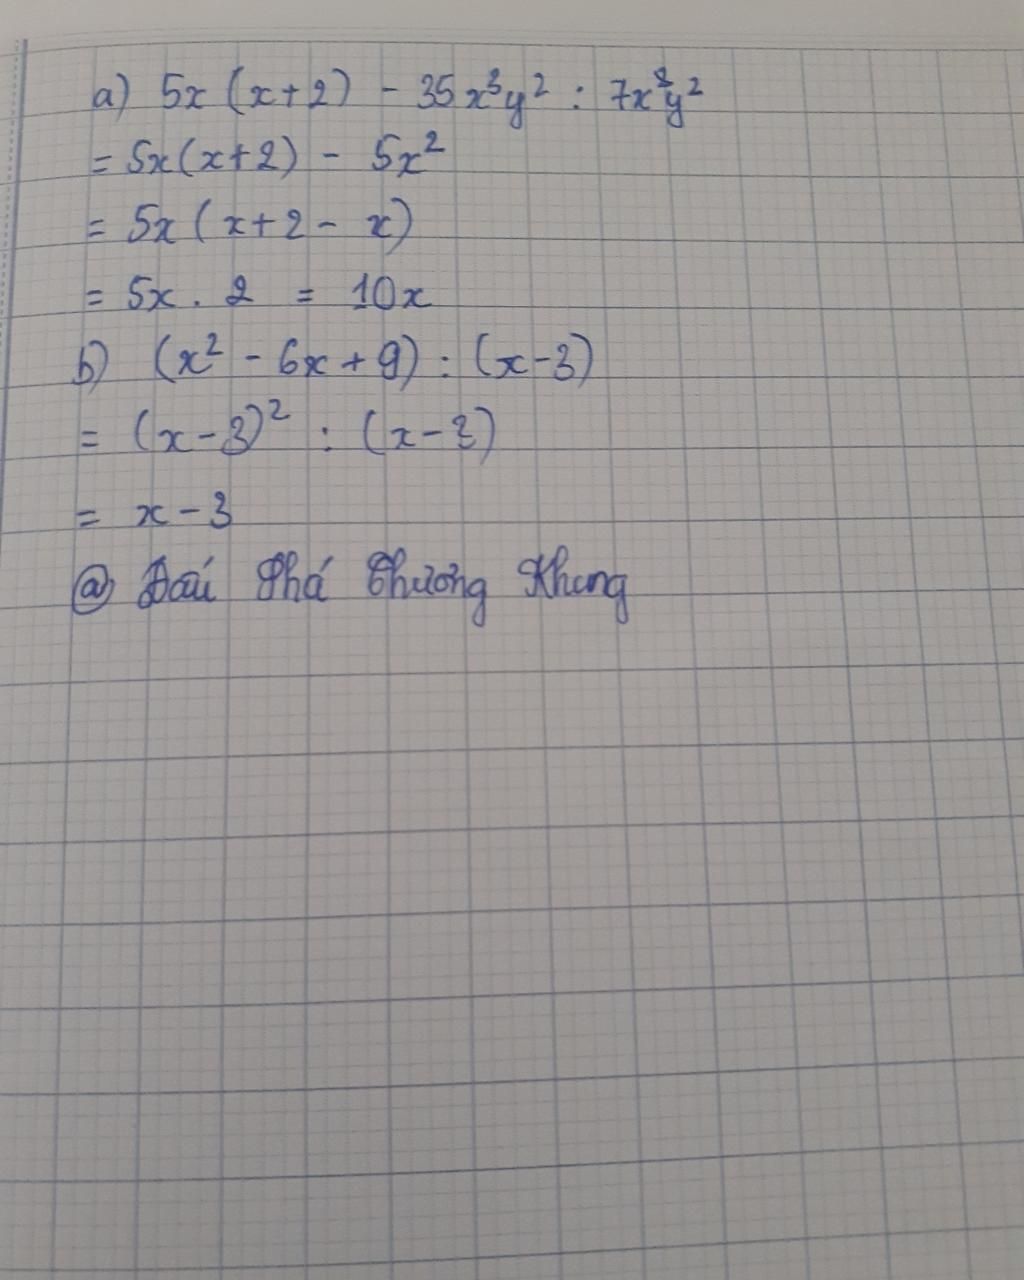 a) 5x (x+2) - 35x³y² : 7x²y²
= 5x(x+2) - 5x²
= 5x (x+2 - x)
= 5x . 2 = 10x
b) (x² - 6x + 9) : (x-3)
= (x-3)² : (x-3)
= x - 3
@ Đấu Phá Thương Khung